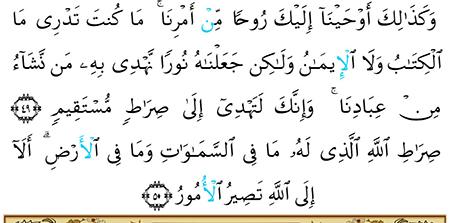 وَكَذَٰلِكَ أَوْحَيْنَآ إِلَيْكَ رُوحًا مِّنْ أَمْرِنَا ۚ مَا كُنتَ تَدْرِى مَا
ٱلْكِتَـٰبُ وَلَا ٱلْإِيمَـٰنُ وَلَـٰكِن جَعَلْنَـٰهُ نُورًا نَّهْدِى بِهِۦ مَن نَّشَآءُ
مِنْ عِبَادِنَا ۚ وَإِنَّكَ لَتَهْدِىٓ إِلَىٰ صِرَٰطٍ مُّسْتَقِيمٍ ٤٩
صِرَٰطِ ٱللَّهِ ٱلَّذِى لَهُۥ مَا فِى ٱلسَّمَـٰوَٰتِ وَمَا فِى ٱلْأَرْضِ ۗ أَلَآ
إِلَى ٱللَّهِ تَصِيرُ ٱلْأُمُورُ ٥٠